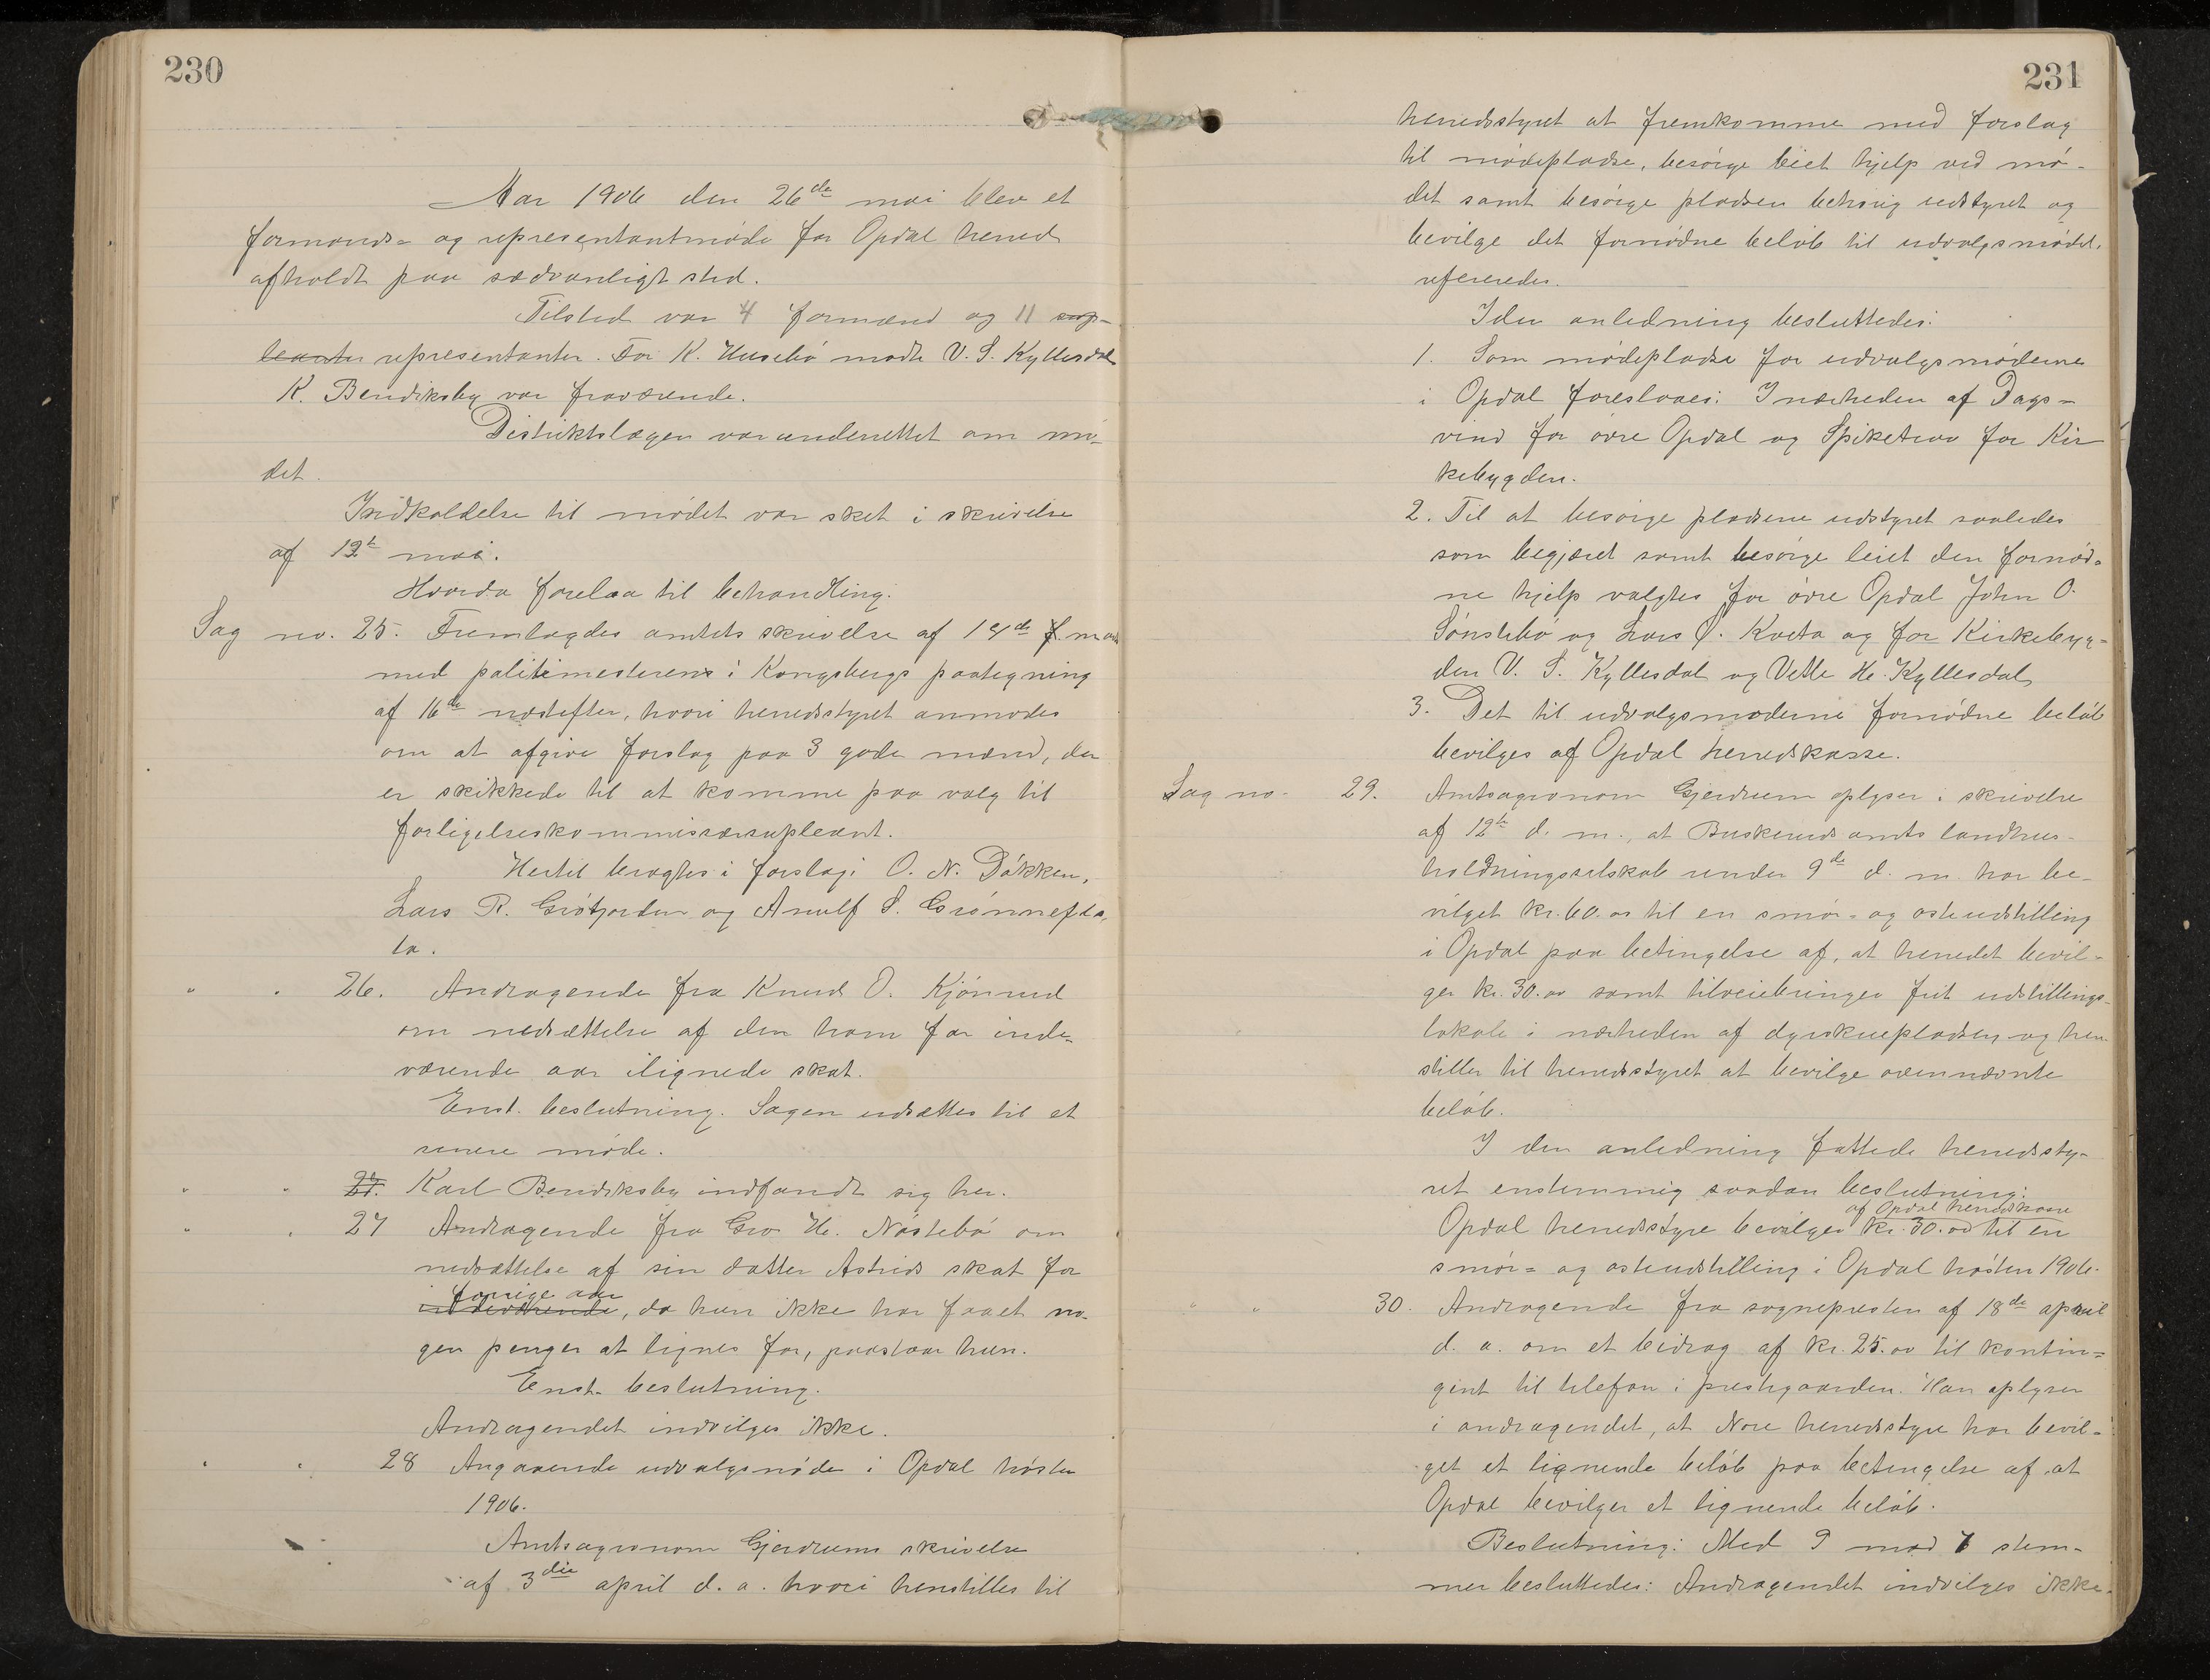 230
Aar 1906 den 26de mai blev et
formands- og representantmøde for Opdal hered
afholdt paa sædvanligt sted.
Tilsted var 4 formænd og 11 sup-
leanter representanter. For K. Husebø mødte V. S. Kyllesdal
K. Bendiksby var fraværende.
Distriktslægen var underrettet om mø-
det.
Indkaldelse til mødet var sket i skrivelse
af 12te mai.
Hvorda forelaa til behandling:
Sag no. 25. Fremlagdes amtets skrivelse af 14de f. md
med politimesterens i Kongsbergs paategning
af 16de næstefter, hvori heredsstyret anmodes
om at afgive forslag paa 3 gode mænd, der
er skikkede til at komme paa valg til
forligelseskommissærsupleant.
Hertil bragtes i forslag: O. N. Døkken,
Lars R. Grøtjorden og Arnulf S. Grønnefla,
ta.
" " 26. Andragende fra Knud O. Kjønnud
om nedsættelse af den ham for inde-
værende aar ilignede skat.
Enst. beslutning. Sagen udsættes til et
senere møde.
" " 27. Karl Bendiksby indfandt sig her.
" " 27 Andragende fra Gro H. Nøstebø om
nedsættelse af sin datter Astrids skat for
forrige aar
indeværende, da hun ikke har faaet no-
gen penger at lignes for, paastaar hun.
Enst. beslutning.
Andragendet indvilges ikke.
" " 28 Angaaende udvalgsmøde i Opdal høsten
1906.
Amtsagronom Gjerdrums skrivelse
af 3die april d. a. hvori henstilles til
231
heredsstyret at fremkomme med forslag
til mødepladse, besørge leiet hjelp ved mø-
det samt besørge pladsen behørig udstyret og
bevilge det fornødne beløb til udvalgsmødet.
refereredes.
I den anledning besluttedes:
1. Som mødepladse for udvalgsmøderne
i Opdal foreslaaes: I nærheden af Dags-
vind for øvre Opdal og Spiketrav for Kir
kebygden.
2. Til at besørge pladsene udstyret saaledes
som begjæret samt besørge leiet den fornød-
ne hjelp valgtes for øvre Opdal John O.
Sønstebø og Lars O. Kveta og for Kirkebyg-
den V. S. Kyllesdal og Vetle H. Kyllesdal
3. Det til udvalgsmøderne fornødne beløb
bevilges af Opdal heredskasse.
Sag no. 29. Amtsagronom Gjerdrum oplyser i skrivelse
af 12te d. m., at Buskeruds amts landhus-
holdningsselskab under 9de d. m. har be-
vilget kr. 60.00 til en smør- og osteudstilling
i Opdal paa betingelse af, at heredet bevil-
ger kr. 30.00 samt tilveiebringer frit udstillings-
lokale i nærheden af dyrskuepladsen og hen
stiller til heredsstyret at bevilge ovennævnte
beløb.
I den anledning fattede heredssty-
ret enstemmig saadan beslutning:
af Opdal heredskasse
Opdal heredsstyre bevilger kr. 30.00 til en
smør- og osteudstilling i Opdal høsten 1906.
" " 30. Andragende fra sognepresten af 18de april
d. a. om et bidrag af kr. 25.00 til kontin-
gent til telefon i prestegaarden. Han oplyser
i andragendet, at Nore heredsstyre har bevil-
get et lignende beløb paa betingelse af, at
Opdal bevilger et lignende beløb.
Beslutning: Med 9 mod 7 stem-
mer besluttedes: Andragendet indvilges ikke.